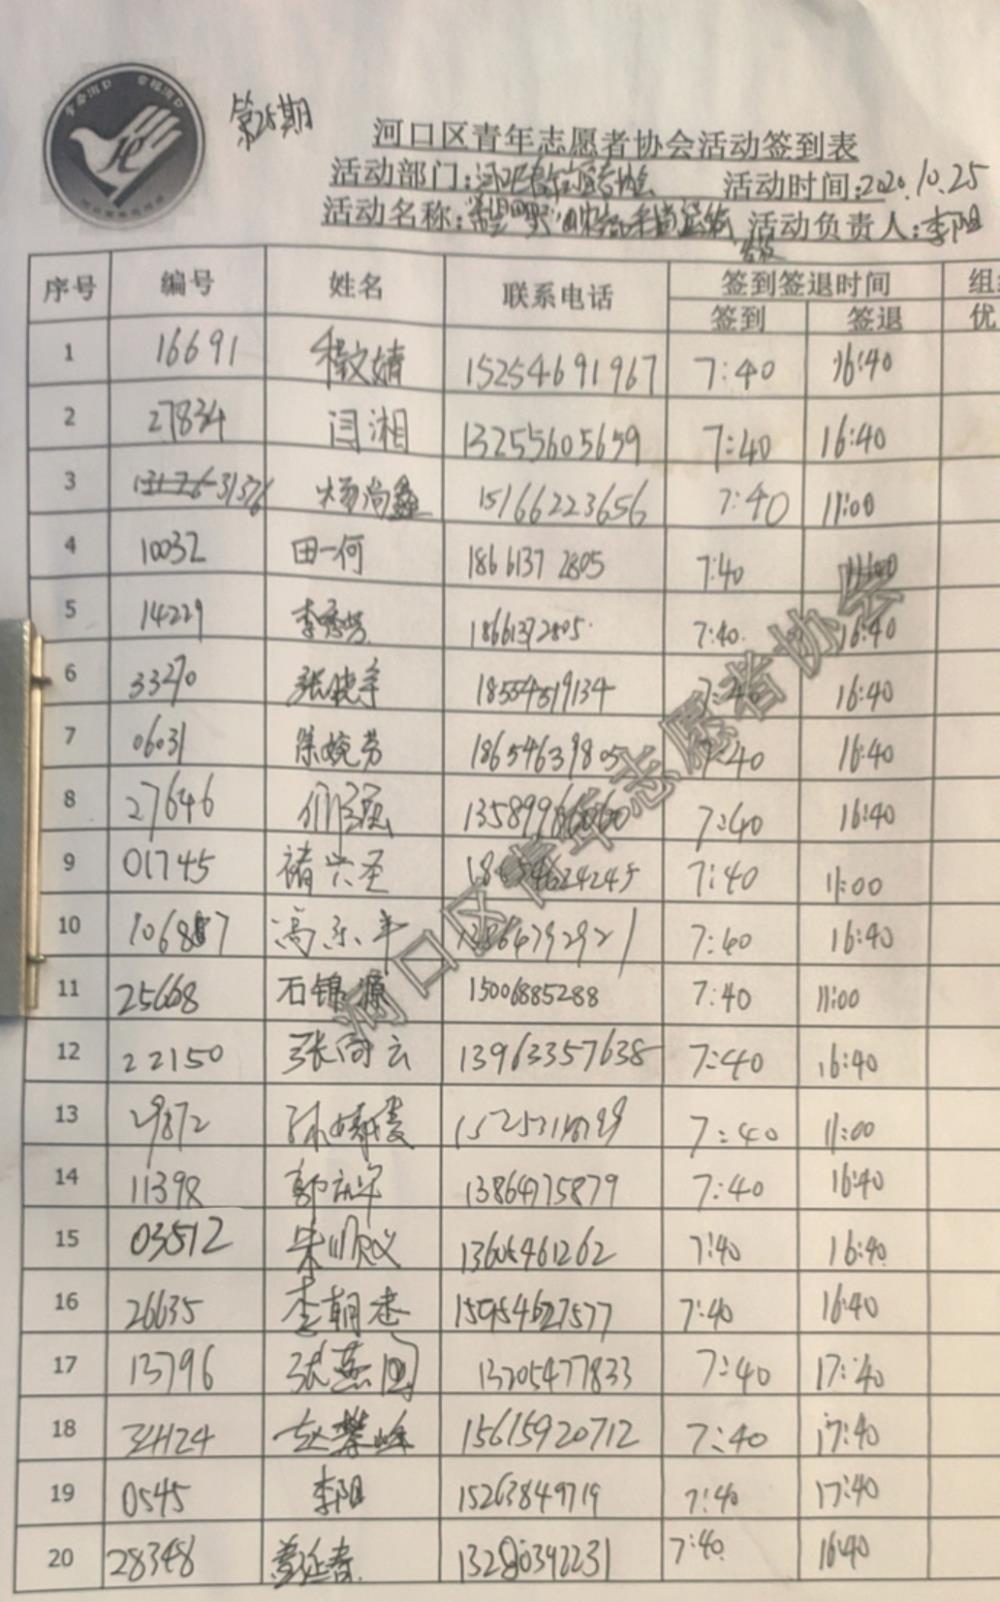 第25期
河口区青年志愿者协会活动签到表
活动部门: 活动时间:2020.10.25
活动名称: 活动负责人:李阳
序号 编号 姓名 联系电话 签到签退时间
签到 签退 优
1 16691 程文婧 15254691967 7:40 16:40
2 27834 闫湘 13255605659 7:40 16:40
3 31376 杨尚鑫 15166223656 7:40 11:00
4 10032 田一何 18661372805 7:40 11:00
5 14229 李秀芳 18661372805 7:40 16:40
6 33270 张晓宇 18554819134 7:40 16:40
7 06031 陈婉芳 18654639805 7:40 16:40
8 27646 13589986060 7:40 16:40
9 01745 褚兴圣 18654624245 7:40 11:00
10 冯东平 7:40 16:40
11 25668 石锦源 15006885288 7:40 11:00
12 22150 张同云 13963357638 7:40 16:40
13 29872 7:40 11:00
14 11398 郭庆军 13864775879 7:40 16:40
15 03512 宋顺义 13605461262 7:40 16:40
16 26635 李朝进 150954627577 7:40 16:40
17 13796 张燕 13205477833 7:40 17:40
18 34124 赵攀峰 15615920712 7:40 17:40
19 0545 李阳 15263849719 7:40 17:40
20 28348 13280392231 7:40 16:40
河口区青年志愿者协会